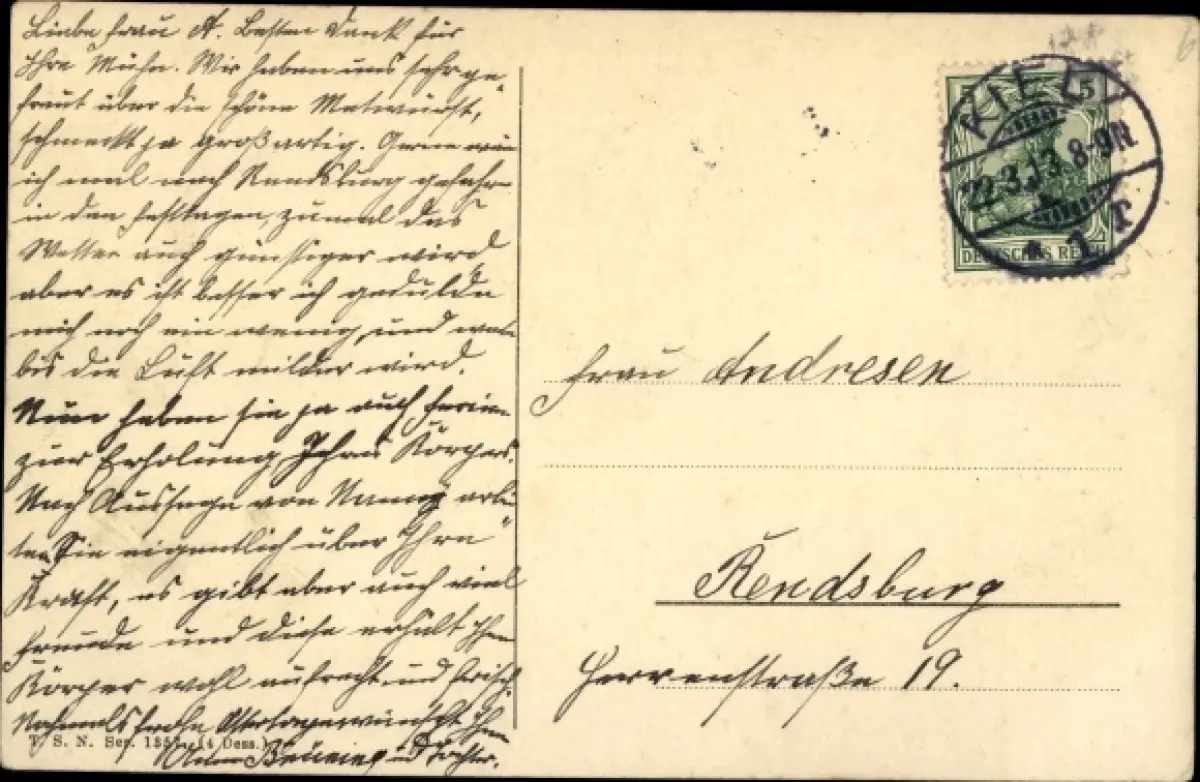 Liebe Frau A. Besten Dank für
Ihre Mühe. Wir haben uns sehr ge
freut über die schöne Metwurst,
schmeckt ja großartig. Gerne wär
ich mal nach Rendsburg gefahren
in den Festtagen, zumal das
Wetter auch günstiger wird,
aber es ist besser ich gedulde
mich noch ein wenig, und
bis die Luft milder wird.
Nun haben sie ja auch Ferien
zur Erholung Ihres Körpers.
Nach Aussage von Nanny arbei
ten Sie eigentlich über Ihre
Kraft, es gibt aber auch viel
Freude und diese erhält Ihren
Körper wohl aufrecht und frisch.
Nochmals frohe Ostertage wünscht Ihnen
und Tochter.
T. S. N. Ser. 1357 (4 Dess.)
KIEL
22.3.13. 8-9N
* 1 r
5
DEUTSCHES REICH
Frau Andresen
Rendsburg
Herrenstraße 19.